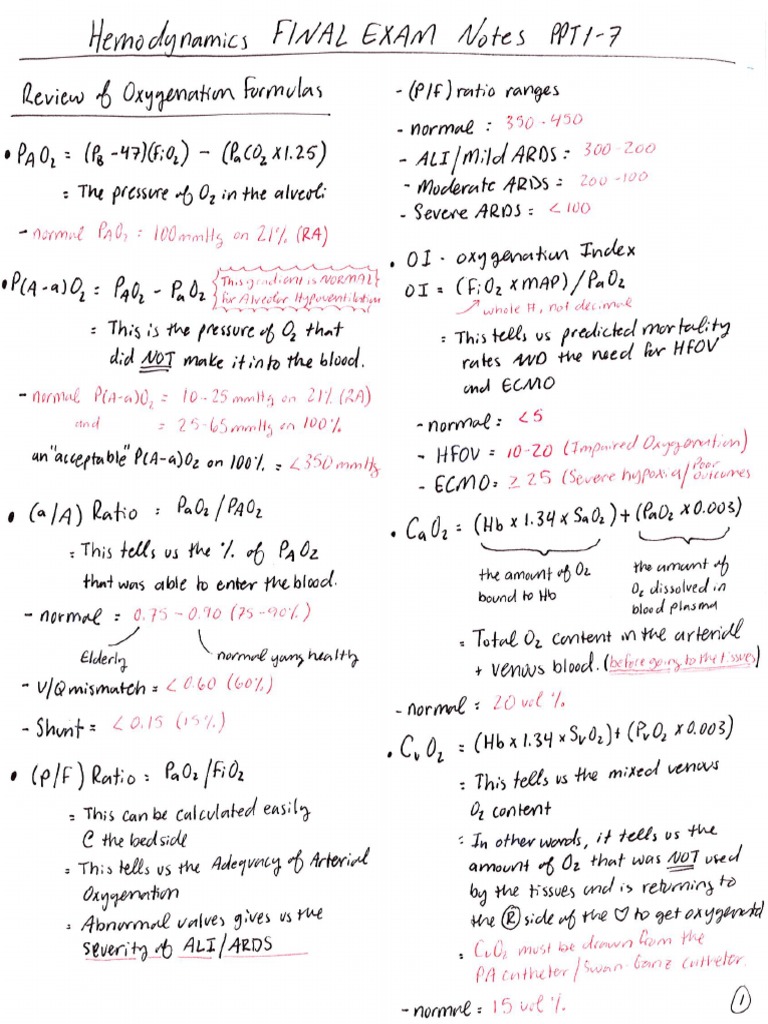 Hemodynamics FINAL EXAM Notes PPT1-7
Review of Oxygenation Formulas
• PAO2 = (PB -47)(FiO2) - (PaCO2 x 1.25)
= The pressure of O2 in the alveoli
- normal PAO2 = 100mmHg on 21% (RA)
• P(A-a)O2 = PAO2 - PaO2
This gradient is NORMAL
for Alveolar Hypoventilation
= This is the pressure of O2 that
did NOT make it into the blood.
- normal P(A-a)O2 = 10-25 mmHg on 21% (RA)
and = 25-65mmHg on 100%
an "acceptable" P(A-a)O2 on 100% = <350mmHg
• (a/A) Ratio = PaO2/PAO2
= This tells us the % of PAO2
that was able to enter the blood.
- normal = 0.75 - 0.90 (75-90%)
Elderly normal yang healthy
- V/Q mismatch = <0.60 (60%)
- Shunt = <0.15 (15%)
• (P/F) Ratio = PaO2/FiO2
= This can be calculated easily
C the bedside
= This tells us the Adequacy of Arterial
Oxygenation
= Abnormal values gives us the
severity of ALI/ARDS
- (P/F) ratio ranges
- normal : 350-450
- ALI/Mild ARDS = 300-200
- Moderate ARDS = 200-100
- Severe ARDS = <100
• OI - oxygenation Index
OI = (FiO2 x MAP) / PaO2
whole #, not decimal
= This tells us predicted mortality
rates AND the need for HFOV
and ECMO
- normal = <5
- HFOV = 10-20 (Impaired Oxygenation)
- ECMO = ≥ 25 (Severe hypoxia/Poor Outcomes
• CaO2 = (Hb x 1.34 x SaO2) + (PaO2 x 0.003)
the amount of O2
bound to Hb
the amount of
O2 dissolved in
blood plasma
= Total O2 content in the arterial
+ venous blood. (before going to the tissues)
- normal = 20 vol %
• CvO2 = (Hb x 1.34 x SvO2) + (PvO2 x 0.003)
= This tells us the mixed venous
O2 content
= In other words, it tells us the
amount of O2 that was NOT used
by the tissues and is returning to
the Ⓡ side of the ♡ to get oxygenated
= CvO2 must be drawn from the
PA catheter/Swan-Ganz catheter.
- normal = 15 vol %
①